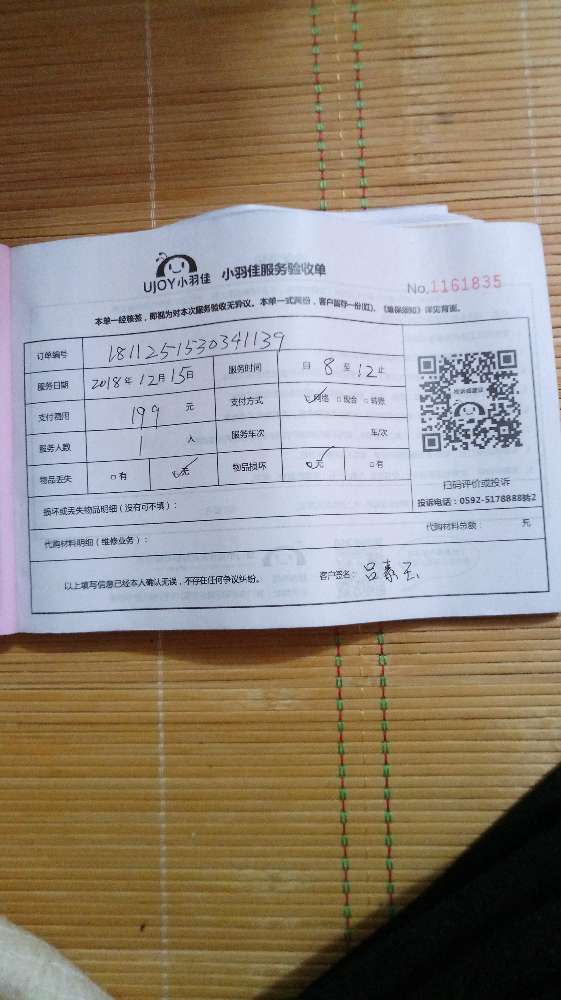 UJOY小羽佳 小羽佳服务验收单
No.1161835
本单一经核签，即视为对本次服务验收无异议。本单一式两份，客户留存一份(红)。《维保须知》详见背面。
订单编号 1811251530341139
服务日期 2018年12月15日 服务时间 自 8 至 12 止
支付费用 199 元 支付方式 ☑网络 □现金 □转账
服务人数 1 人 服务车次 车/次
物品丢失 □有 ☑无 物品损坏 ☑无 □有
扫码评价或投诉
投诉电话：0592-5178888转2
损坏或丢失物品明细（没有可不填）：
代购材料明细（维修业务）： 代购材料总额： 元
以上填写信息已经本人确认无误，不存在任何争议纠纷。 客户签名：吕素玉